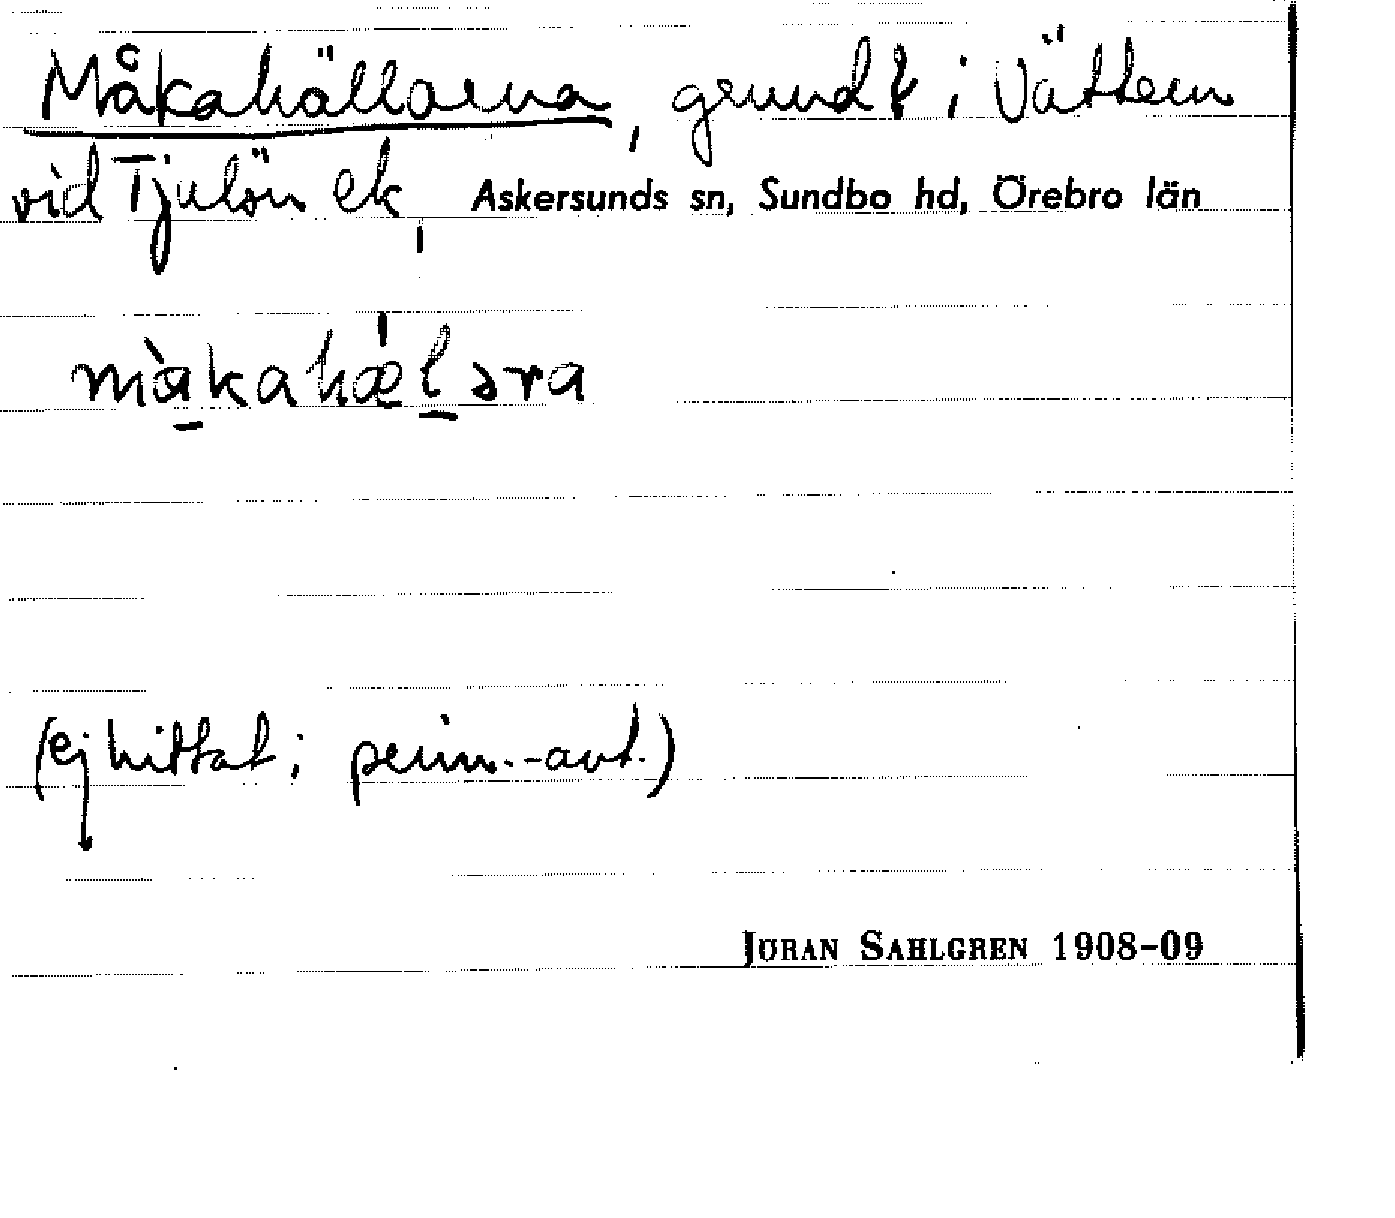 Måkahällarna, grundt i Vättern
vid Tjulön ek, Askersunds sn, Sundbo hd, Örebro län
måkahælǝra
(ej hittat; prim.-avt.)
JÖRAN SAHLGREN 1908-09